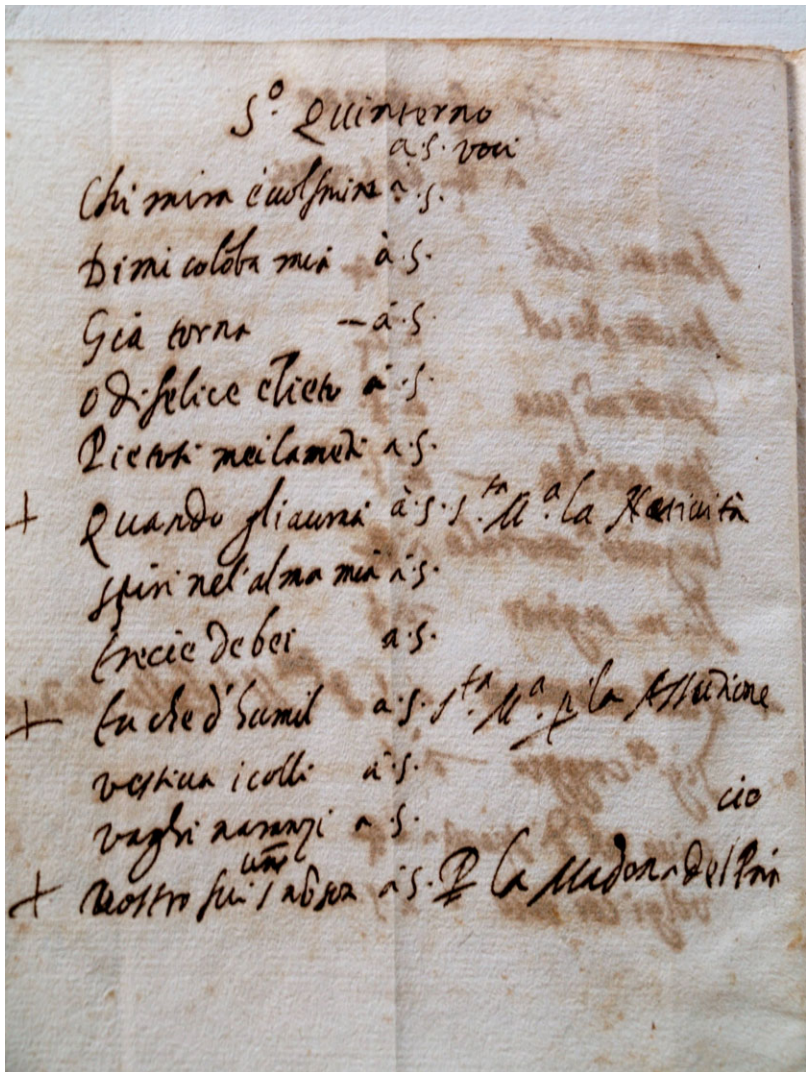 5º Quinterno
a .5. voci
Chi mira è vol à .5.
Dimi colōba mia à .5.
Già torna — à .5.
O di felice e lieto à .5.
Pietosi miei lameti a .5.
+ Quando gli à .5. S.ta M.a la Natività
spiri nel'alma mia à .5.
trecie de bei a .5.
+ tu che d'humil a .5. S.ta M.a p la Assūtione
vestiva i colli à .5.
vaghi naranzi a .5.
cio
+ Vostro fui à .5. P la Madona del Prin